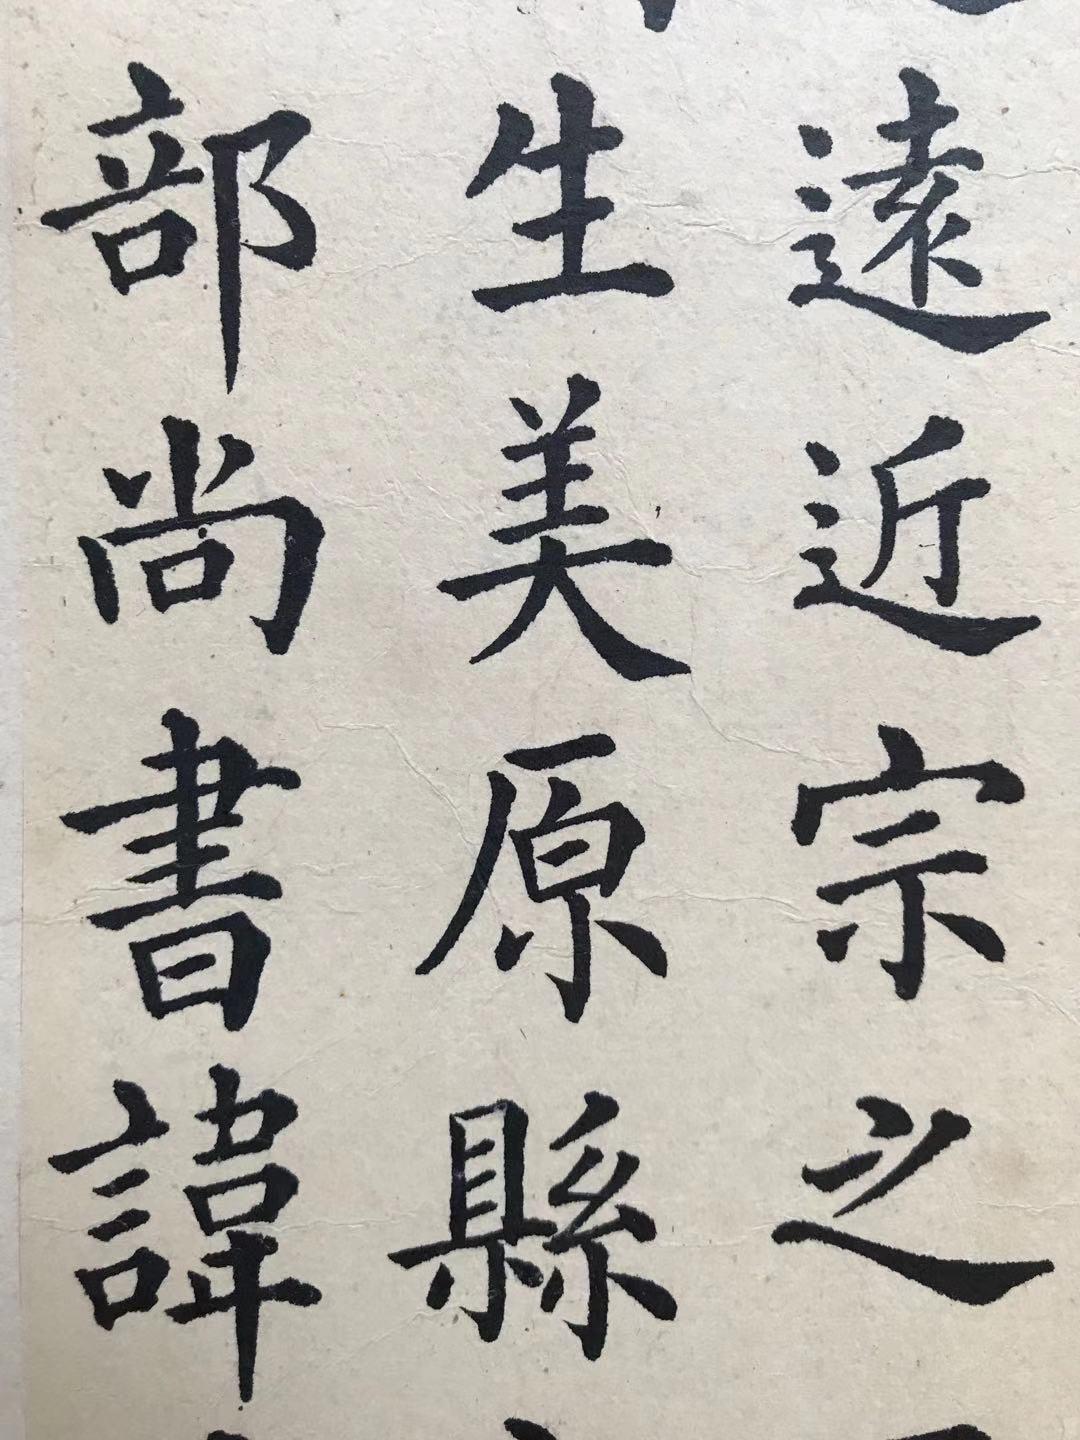 遠近宗之
生美原縣
部尚書諱